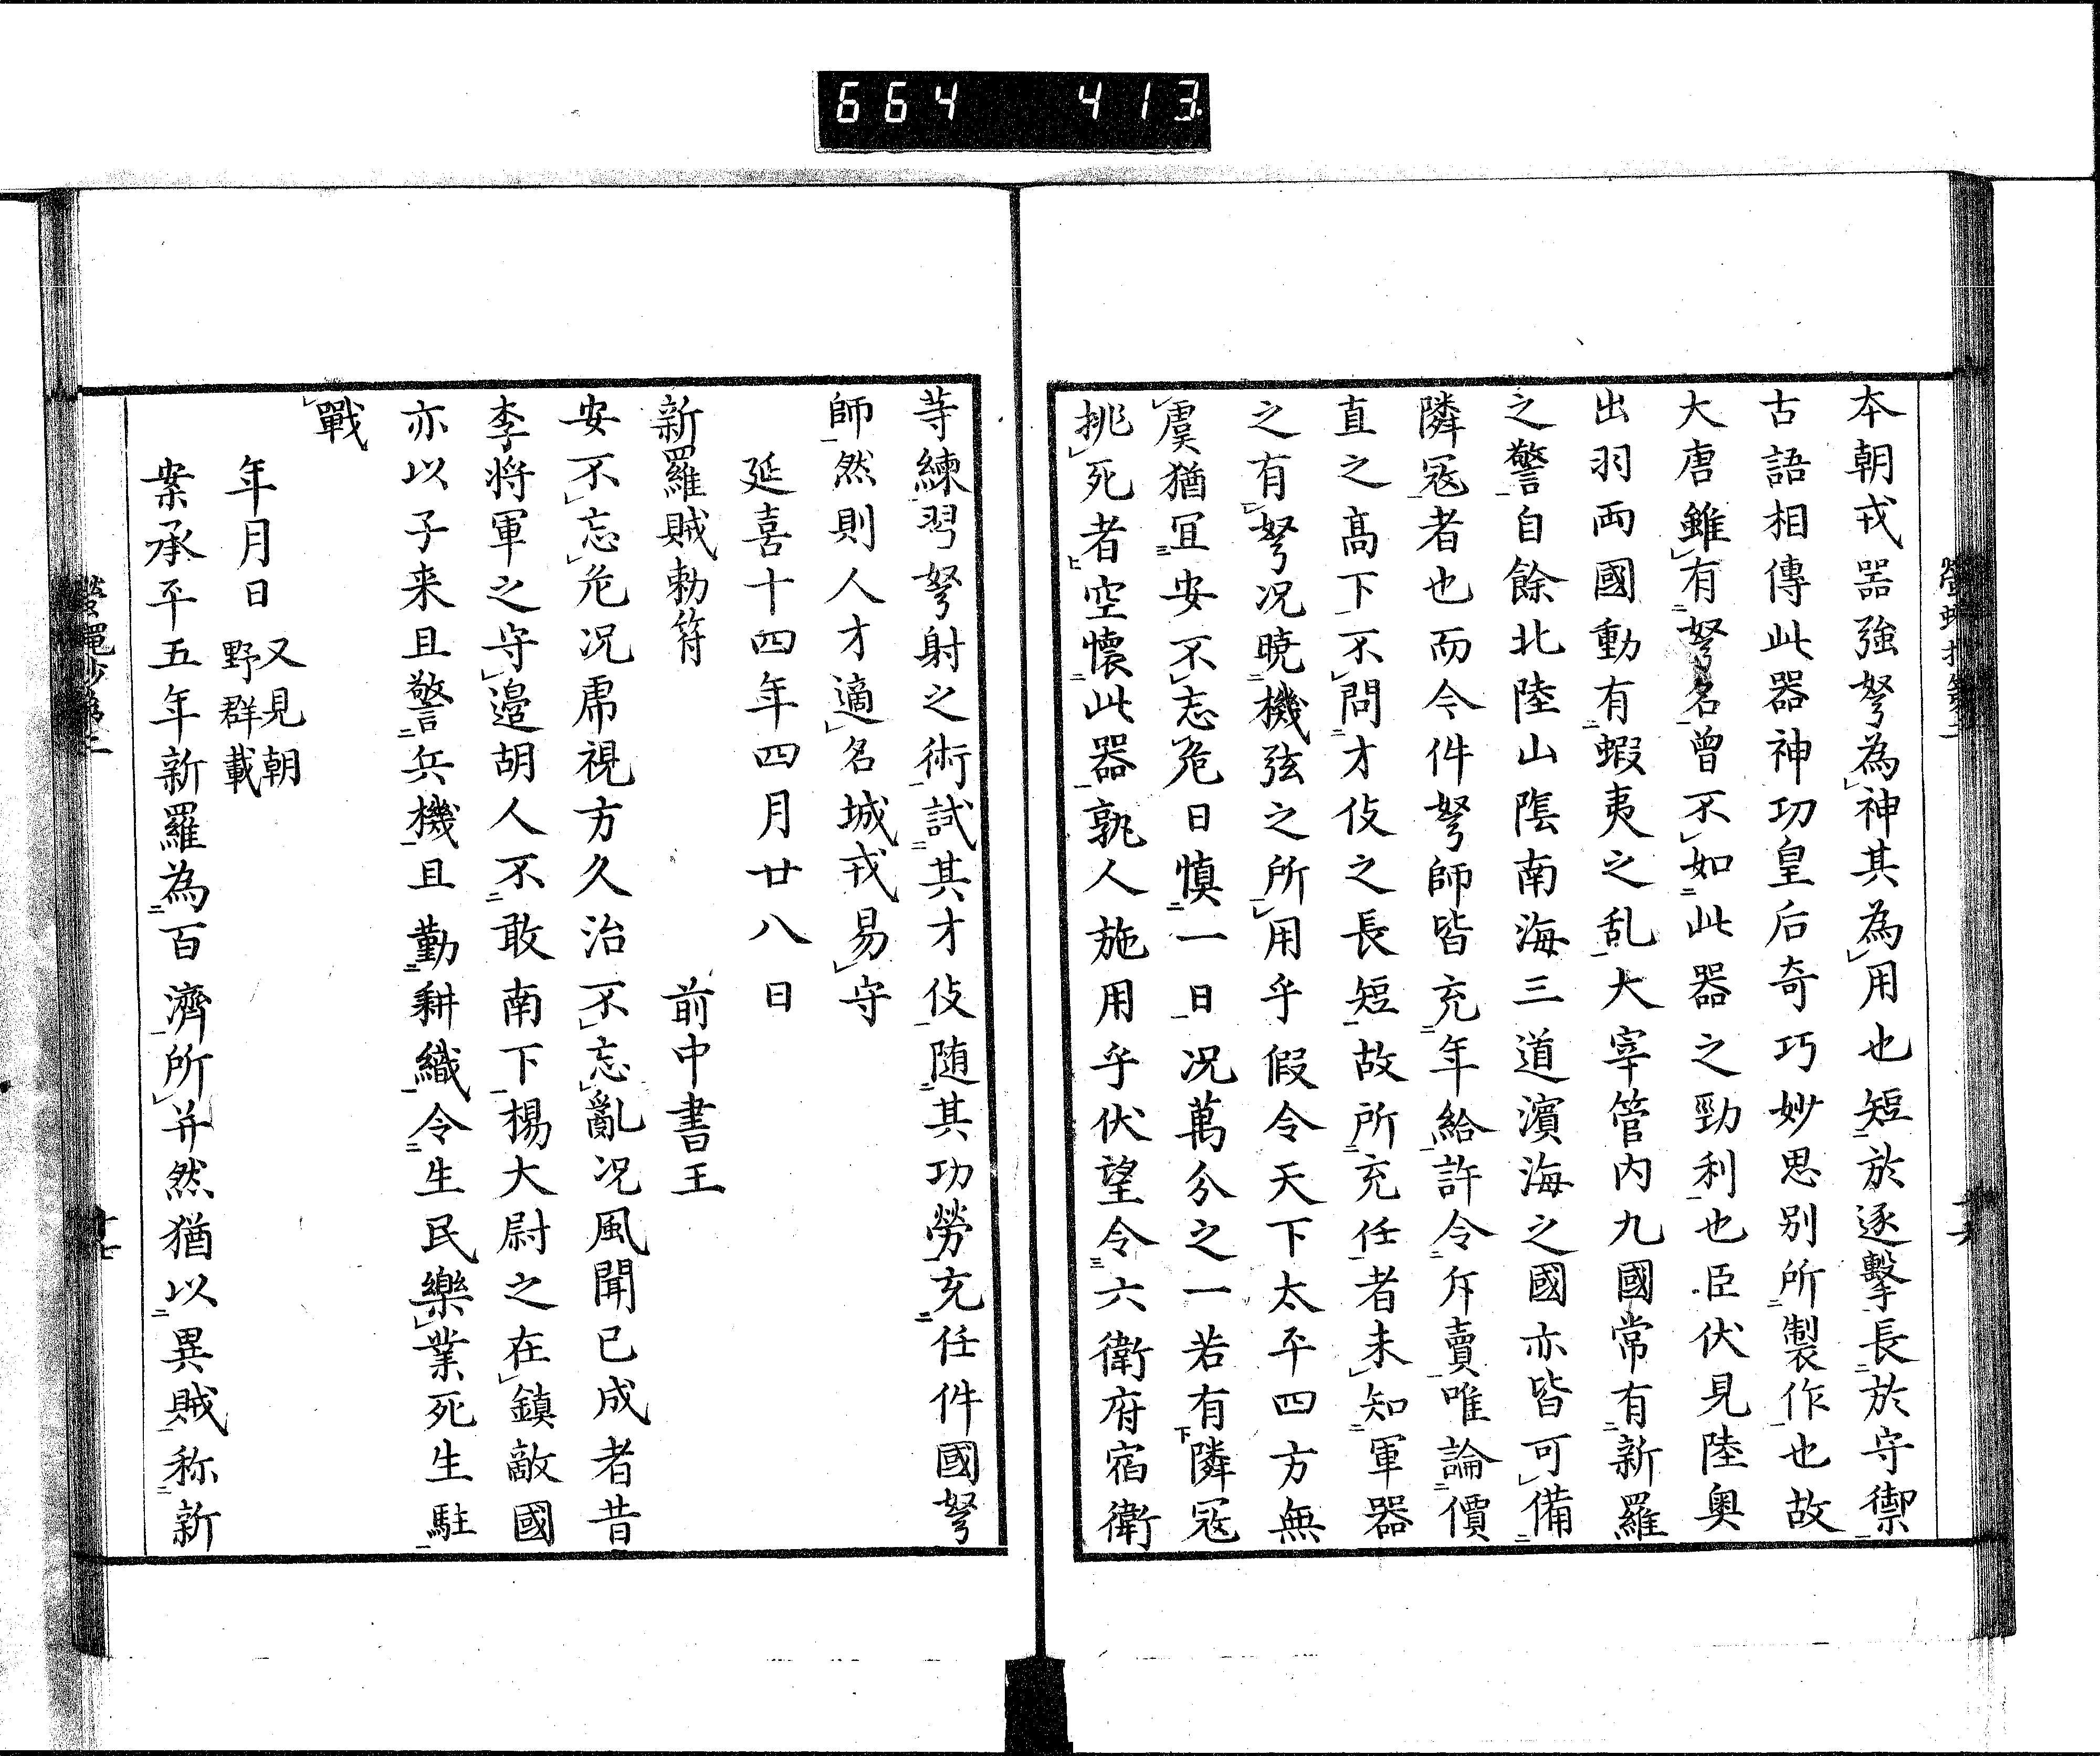 664 413
本朝戎噐強弩為神其為用也短於逐擊長於守禦
古語相傳此器神功皇后奇巧妙思别所製作也故
大唐雖有弩名曾不如此器之勁利也臣伏見陸奥
出羽両國動有蝦夷之乱大宰管内九國常有新羅
之警自餘北陸山隂南海三道濵海之國亦皆可備
隣冦者也而令件弩師皆充年給許令斥賣唯論價
直之高下不問才伎之長短故所充任者未知軍器
之有弩况暁機弦之所用乎假令天下太平四方無
虞猶冝安不忘危日慎一日况萬分之一若有隣冦
挑死者空懷此器孰人施用乎伏望令六衛府宿衛
䓁練習弩射之術試其才伎随其功勞充任件國弩
師然則人才適名城戎易守
延喜十四年四月廿八日
新羅賊勅符 前中書王
安不忘危况虎視方久治不忘亂况風聞已成者昔
李将軍之守邉胡人不敢南下楊大尉之在鎮敵國
亦以子来且警兵機且勤耕織令生民樂業死生駐
戰
年月日 又見朝
野群載
案承平五年新羅為百濟所并然猶以異賊称新
十七